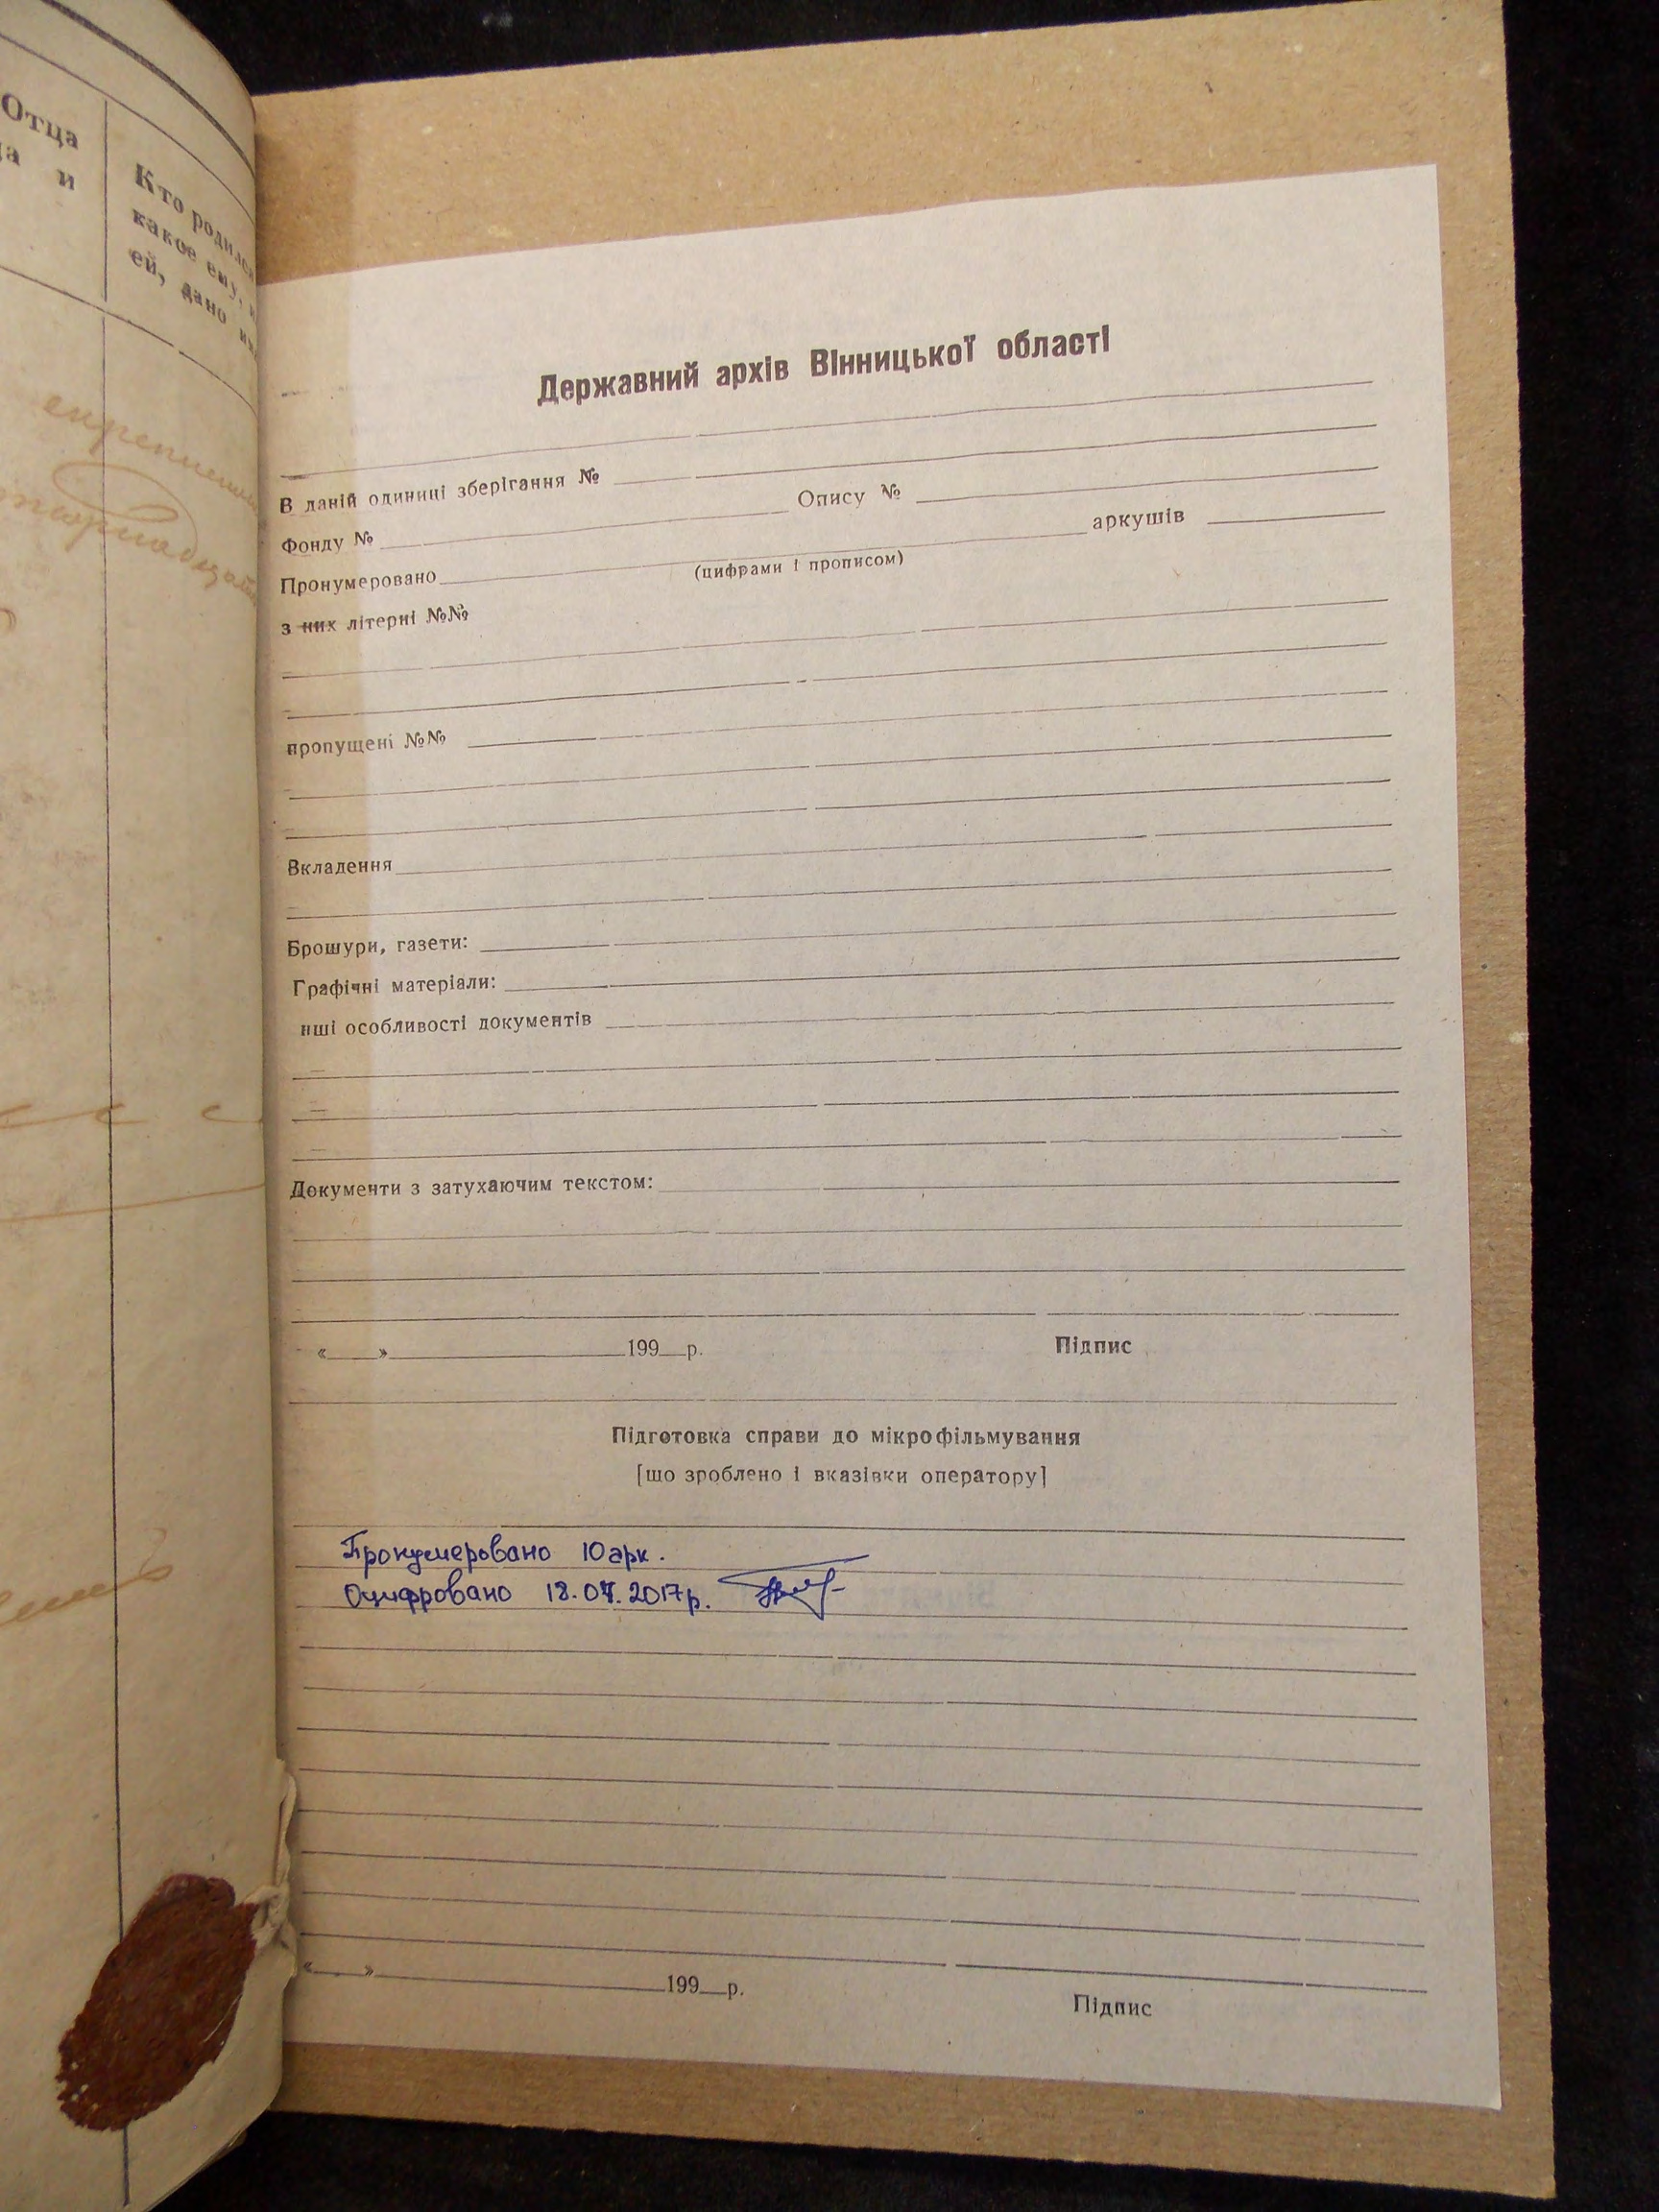 Отца
и
Кто родился
какое ему, и
ей, дано
Державний архів Вінницької області
В даній одиниці зберігання №
Фонду № Опису №
Пронумеровано аркушів
(цифрами і прописом)
з них літерні №№
пропущені №№
Вкладення
Брошури, газети:
Графічні матеріали:
нші особливості документів
Документи з затухаючим текстом:
« » 199 р. Підпис
Підготовка справи до мікрофільмування
[що зроблено і вказівки оператору]
Пронумеровано 10 арк.
Оцифровано 18.04.2017р.
« » 199 р. Підпис